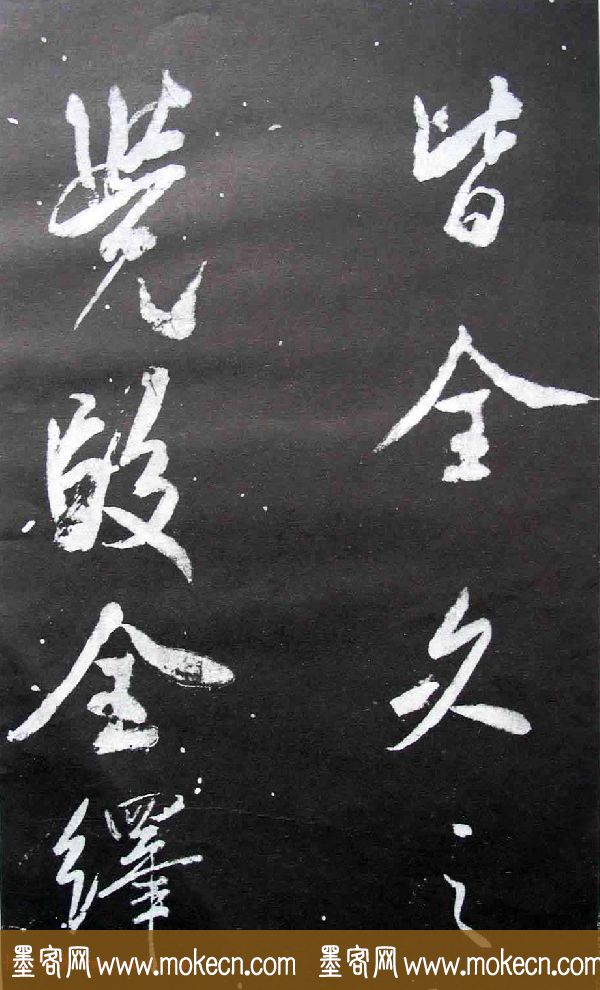 皆全久之
覺全繹
墨客网 www.mokecn.com 墨客网 www.mokecn.com